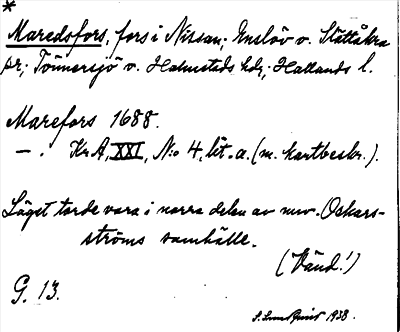 *
Maredsfors, fors i Nissan; Enslöv o. Slättåkra
sr; Tönnersjö o. Halmstads hdr; Hallands l.
Marefors 1688.
— . Kr A, XXI, N:o 4, lit. a. (m. kartbeskr.).
Läget torde vara i norra delen av nuv. Oskars-
ströms samhälle.
(Vänd!)
G. 13.
1938.